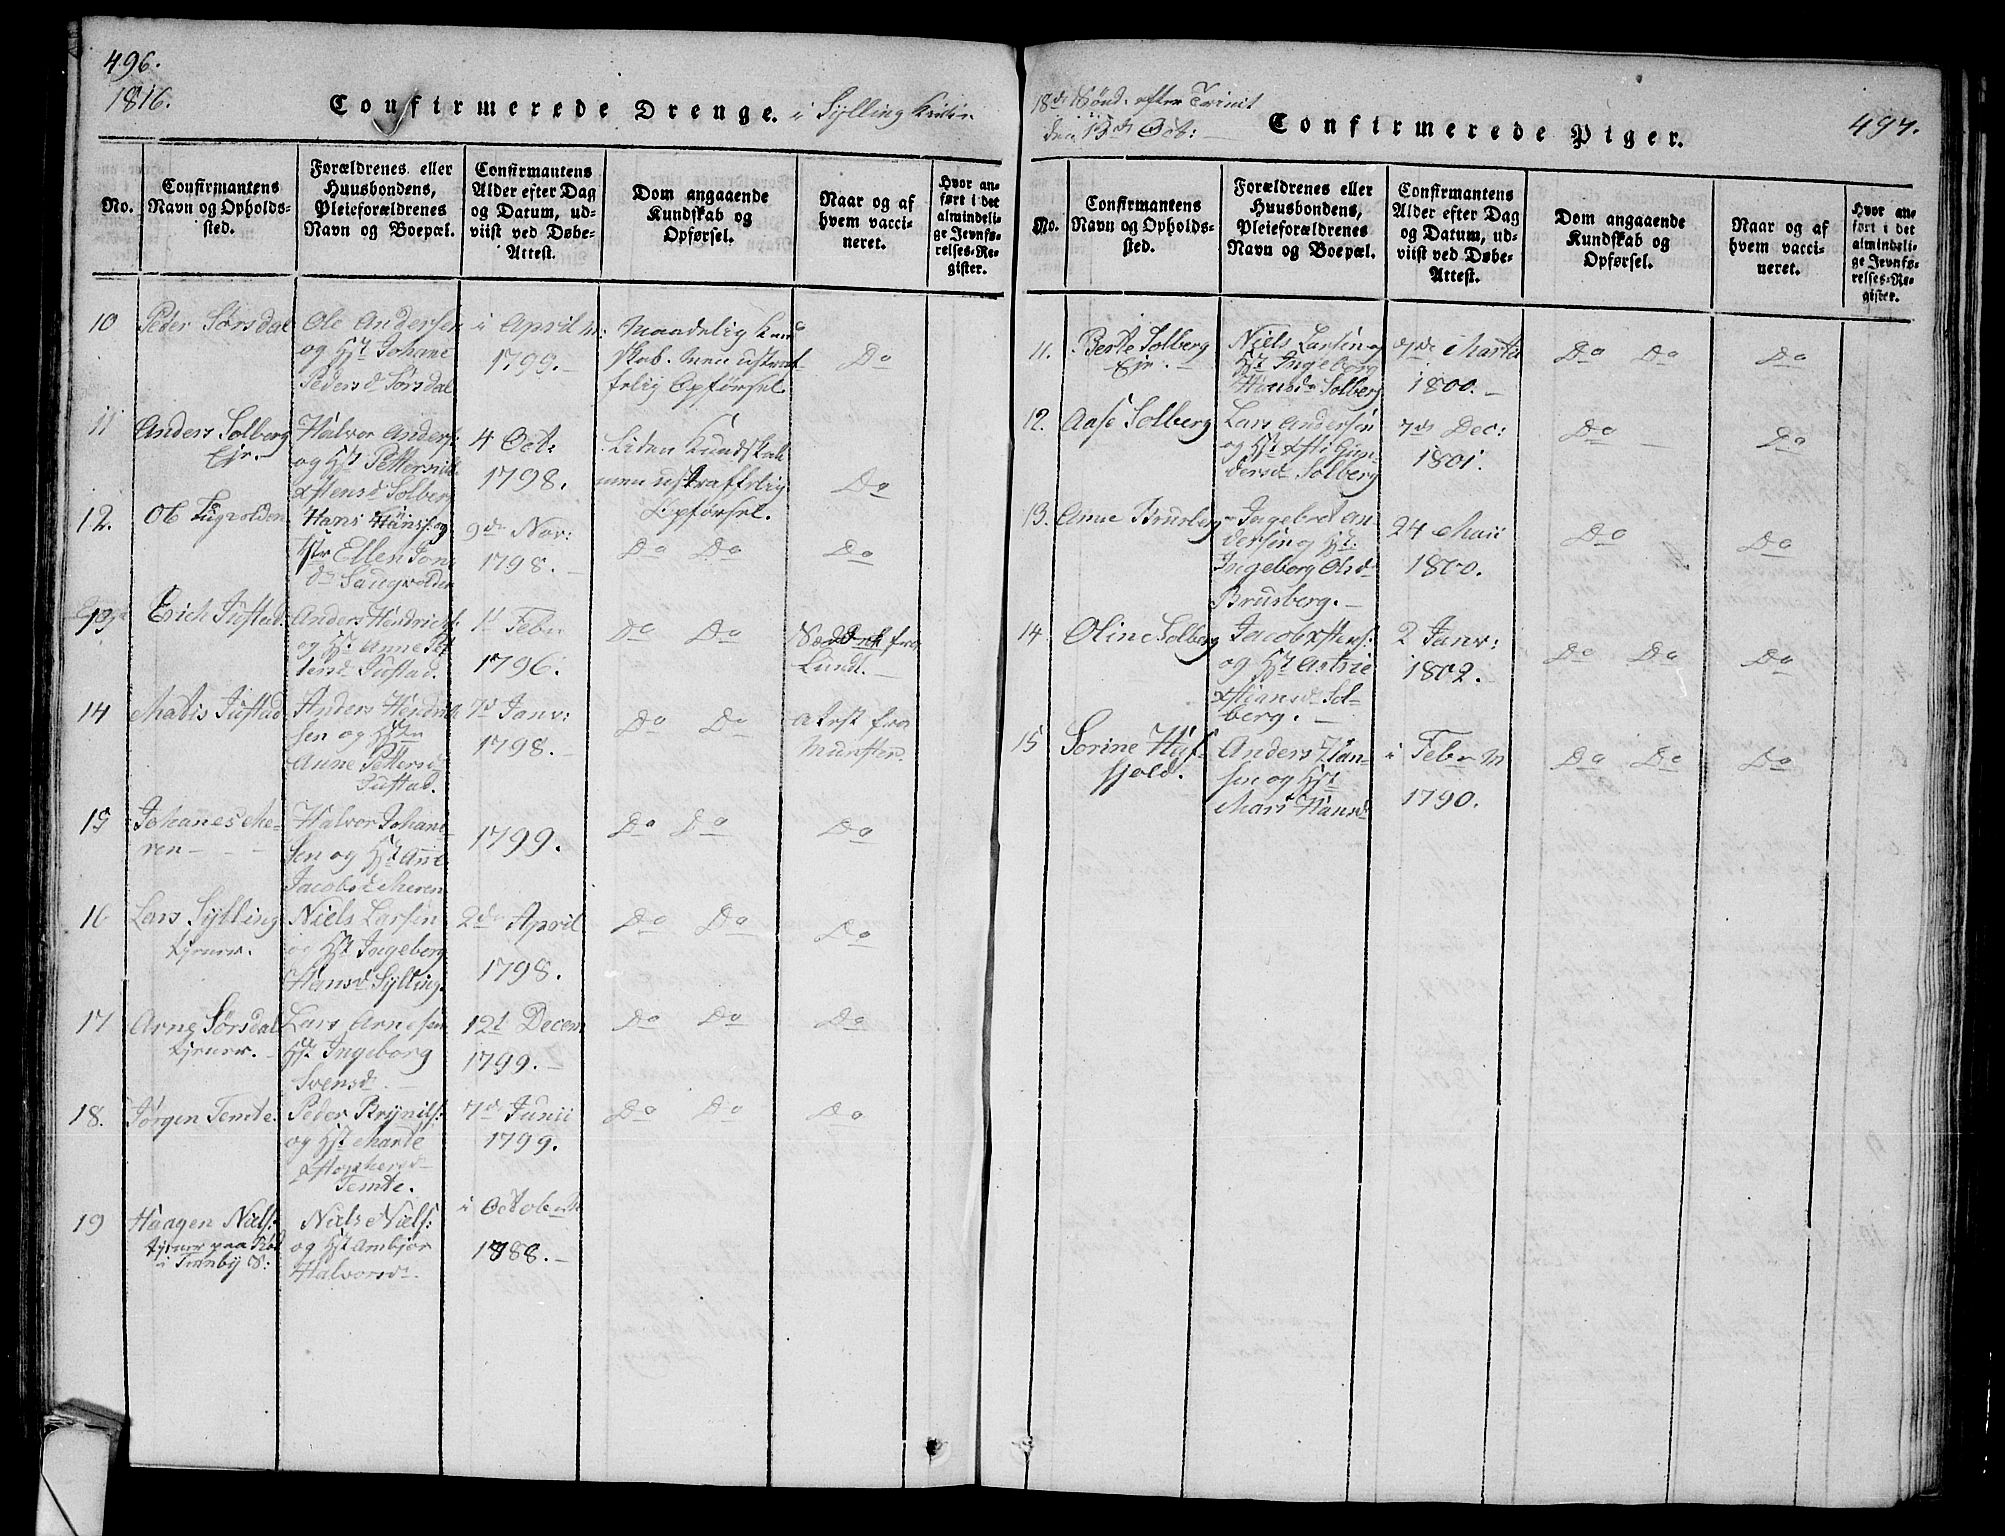 496.
1816.
Confirmerede Drenge. i Sylling Kirke
No.
Confirmantens
Navn og Opholds-
sted.
Forældrenes eller
Huusbondens,
Pleieforældrenes
Navn og Boepæl.
Confirmantens
Alder efter Dag
og Datum, ud-
viist ved Døbe-
Attest.
Dom angaaende
Kundskab og
Opførsel.
Naar og af
hvem vacci-
neret.
Hvor an-
ført i det
almindeli-
ge Jevnfø-
relses-Re-
gister.
10
Peder Sørsdal
Ole Andersen
og Hst Johane
Pedersd Sørsdal
i April M:
1799.-
Maadelig Kund
skab. men ustraf-
felig Opførsel.
Do
11
Anders Solberg
Eje.-
Halvor Anders:
og Hst Petternil
Solberg
4 Oct:
1798.
Liden Kundskab
men ustraffelig
Opførsel.
Do
12.
Hans Hans: og
Hstr Ellen Jons
d
9de Nov:
1798.-
Do Do
Do
13
Erich Tufstad
Anders Hendrichs:
og Hst Anne Pet
tersd Tufstad.
1t Febr
1796.
Do Do
fra
Lund.-
14
Matis Tufstad
Anders Hendrik
sen og Hstr
Anne Pettersd
Tufstad.
7d Janv:
1798.-
Do Do
Attest fra
15
Johanes Me-
ren- - -
Halvor Johane-
sen og Hst Ane
Jacobsd Meren
1799.
Do Do
Do
16
Lars Sylling
Niels Larsen
og Hst Ingeborg
Hansd Sylling.
2de April
1798.
Do Do
Do
17
Arne Sørsdal
Lars Arnesen
Hst Ingeborg
Svensd.-
12t Decem
1799.-
Do Do
Do
18.
Jørgen Temte.
Peder Brynils:
og Hst Marte
Xstophersd
Temte.
7de Junii
1799.
Do Do
Do
19
Haagen Niels:
Niels Niels:
og Hst Ambjør
Halvorsd.
i October M
1788.-
18de Sønd. efter Trinit
den 13de Oct:
Confirmerede Piger.
497.
No.
Confirmantens
Navn og Opholds-
sted.
Forældrenes eller
Huusbondens,
Pleieforældrenes
Navn og Boepæl.
Confirmantens
Alder efter Dag
og Datum, ud-
viist ved Døbe-
Attest.
Dom angaaende
Kundskab og
Opførsel.
Naar og af
hvem vacci-
neret.
Hvor an-
ført i det
almindeli-
ge Jevnfø-
relses-Re-
gister.
11.
Berte Solberg
Eje.-
Niels Larsen og
Hst Ingeborg
Hansd Solberg
7de Martii
1800.-
Do Do
Do
12.
Aase Solberg
Lars Andersen
og Hst Xsti Gun-
dersd Solberg
7de Dec:
1801.
Do -
Do
13.
Anne Brusberg
Ingebret An-
dersen og Hst
Ingeborg Olsd
Brusberg.-
24 Maii
1800.
Do
Do
14.
Oline Solberg
Jacob Xstens:
og Hst Astrie
Xstiansd Sol-
berg.-
2 Janv:
1802.
Do Do
Do
15
Sorine
fjeld.
Anders Han-
sen og Hst
Mari Hansd
i Febr M
1790.
Do Do
Do